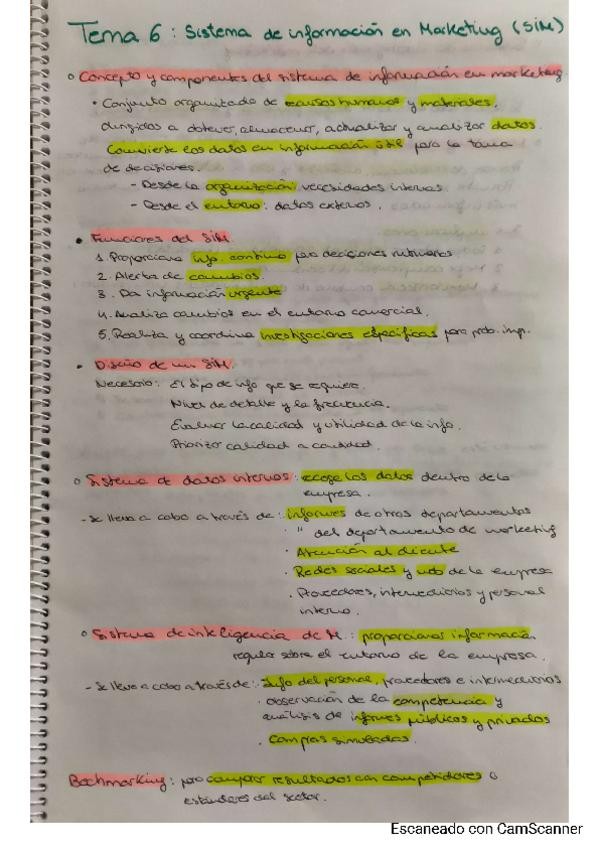 Tema 6: Sistema de información en Marketing (SIM)
Concepto y componentes del sistema de información en marketing
• Conjunto organizado de recursos humanos y materiales,
dirigidos a obtener, almacenar, actualizar y analizar datos.
Convierte los datos en información útil para la toma
de decisiones.
- Desde la organización: necesidades internas
- Desde el entorno: datos externos.
• Funciones del SIM.
1. Proporciona info. continua para decisiones rutinarias
2. Alerta de cambios.
3. Da información urgente
4. Analiza cambios en el entorno comercial.
5. Realiza y coordina investigaciones específicas para prob. imp.
• Diseño de un SIM.
Necesario: El tipo de info que se requiere.
Nivel de detalle y la frecuencia.
Evaluar la calidad y utilidad de la info.
Priorizar calidad a cantidad.
Sistema de datos internos: recoge los datos dentro de la
empresa.
- Se lleva a cabo a través de: informes de otros departamentos
" del departamento de marketing
· Atención al cliente
· Redes sociales y web de la empresa
· Proveedores, intermediarios y personal
interno.
Sistema de inteligencia de M.: proporciona información
regular sobre el entorno de la empresa.
- Se lleva a cabo a través de: Info del personal, proveedores e intermediarios
· observación de la competencia y
análisis de informes públicos y privados
· compras simuladas.
Bachmarking: para comparar resultados con competidores o
estándares del sector.
Escaneado con CamScanner